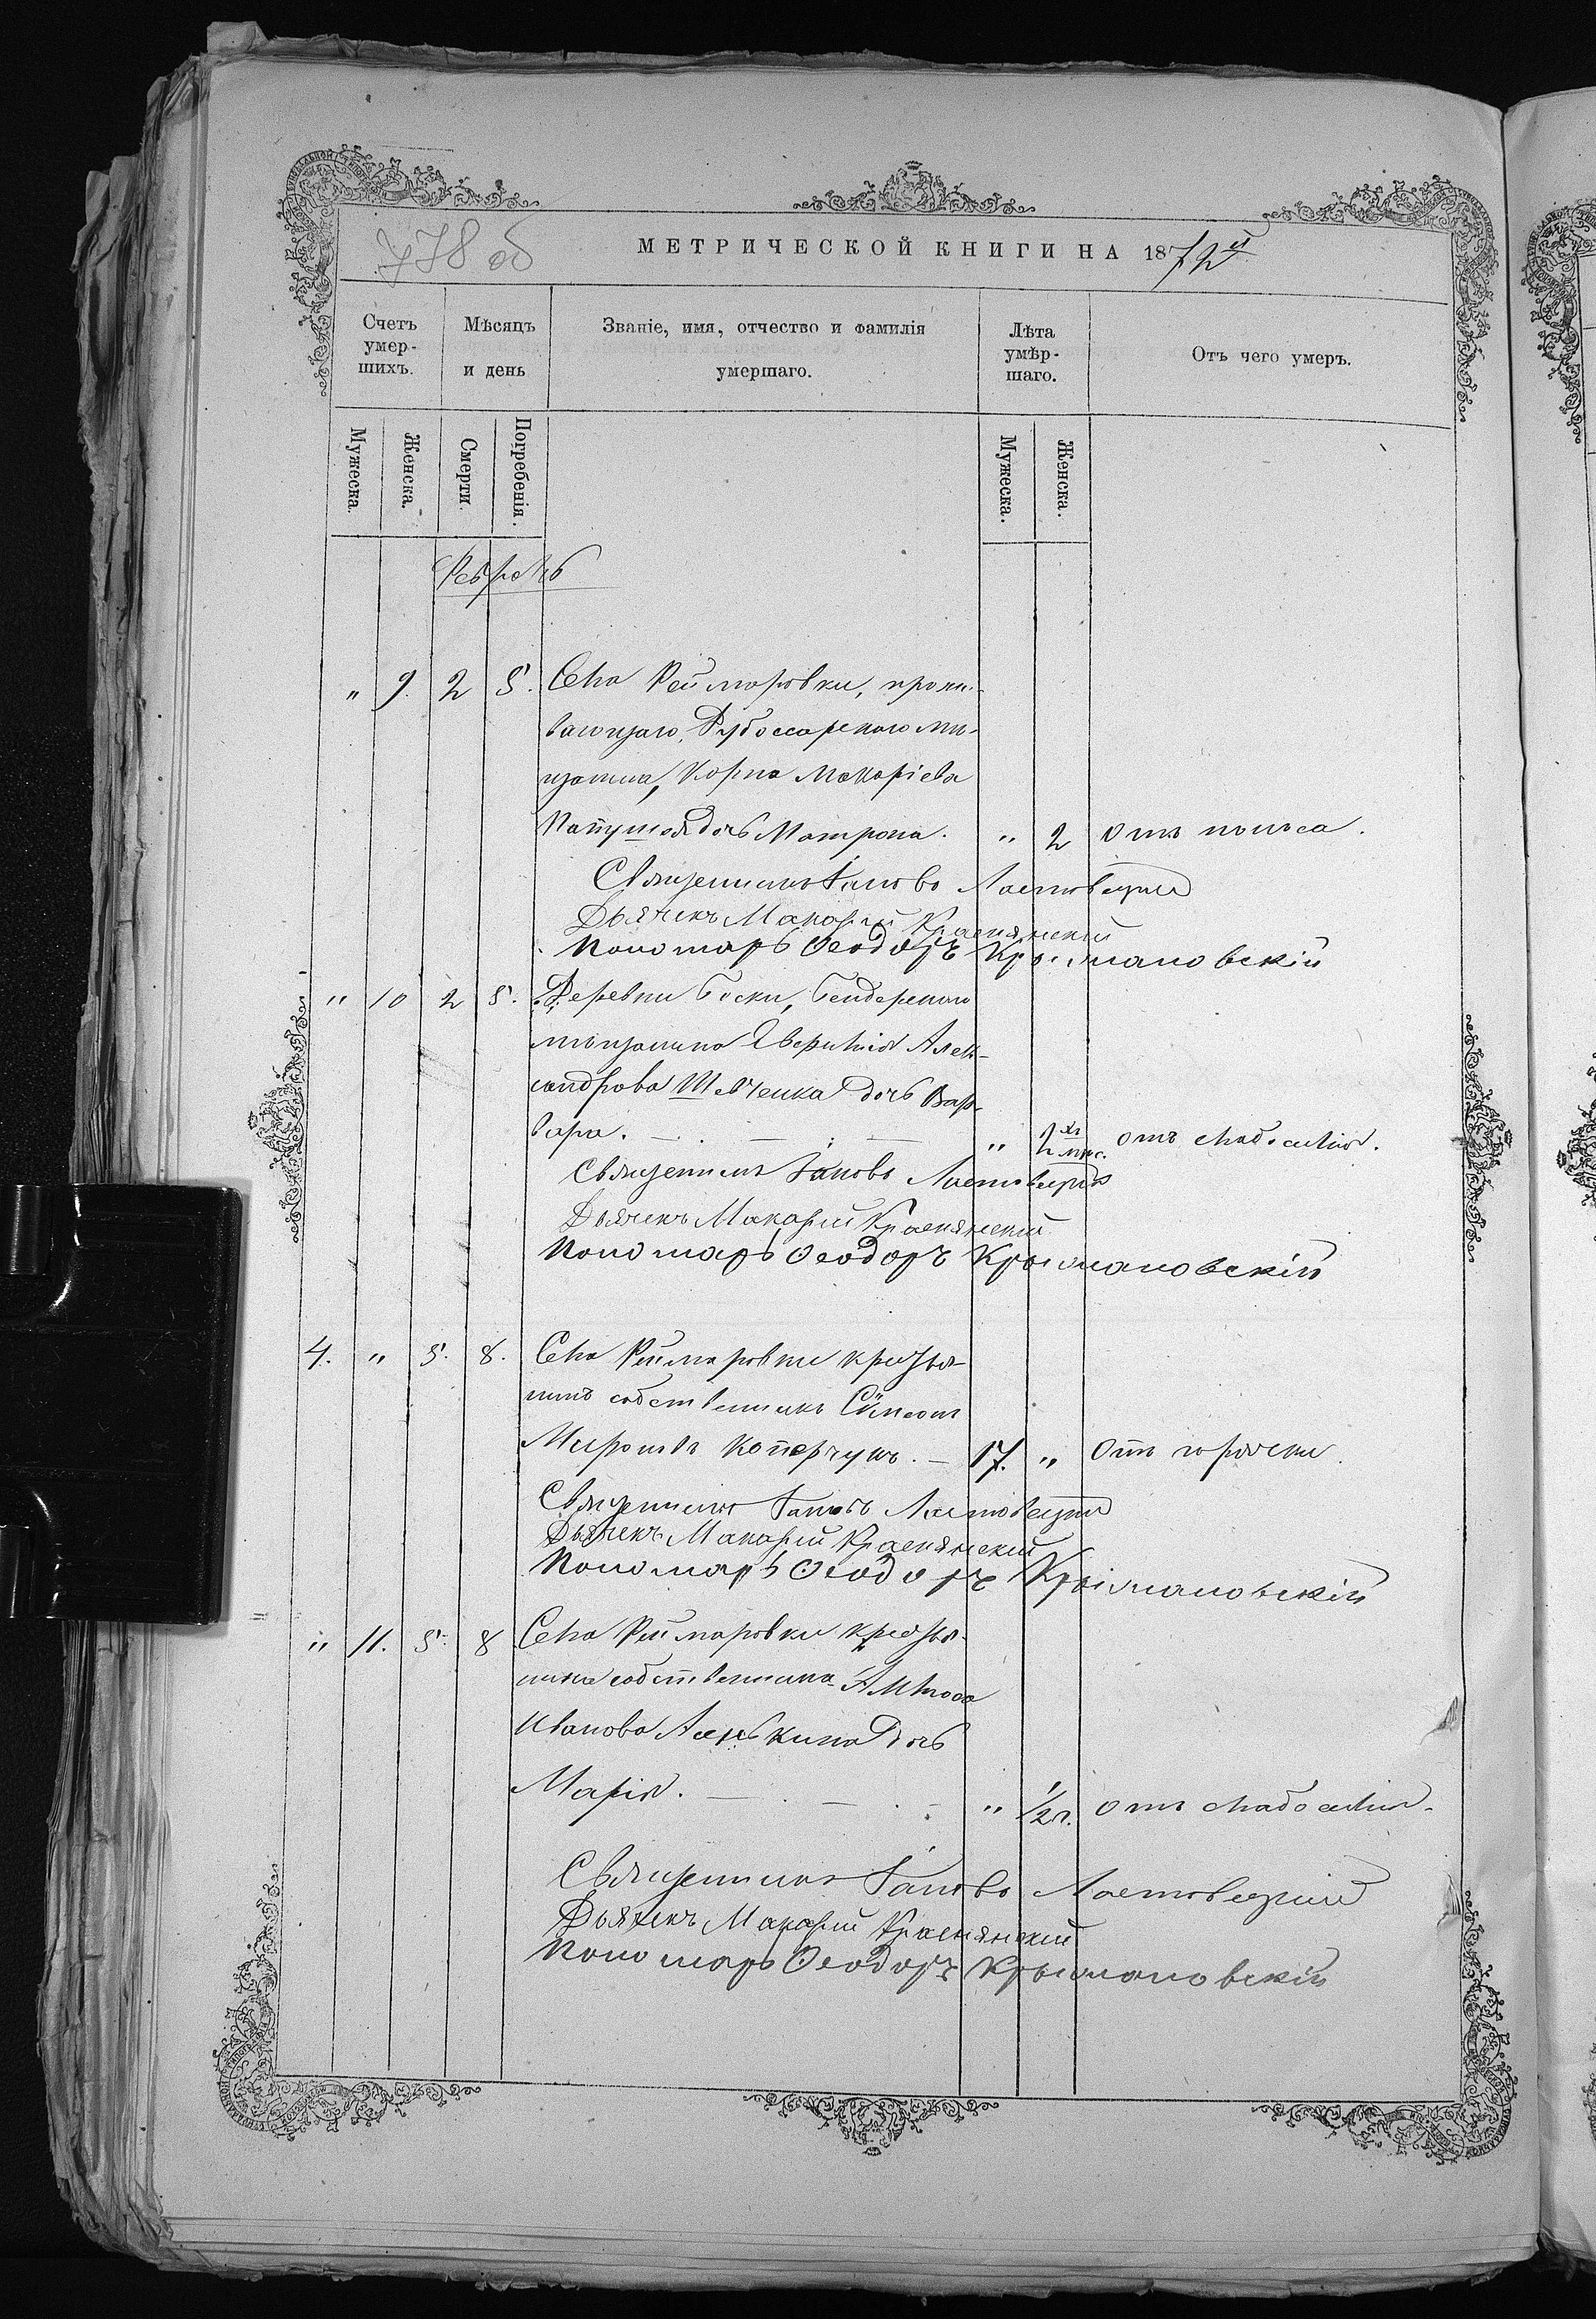 778 об
МЕТРИЧЕСКОЙ КНИГИ НА 1872й
Счетъ умер-шихъ.
Мѣсяцъ и день
Званіе, имя, отчество и фамилія умершаго.
Лѣта умѣр-шаго.
Отъ чего умеръ.
Мужеска.
Женска.
Смерти.
Погребенія.
Мужеска.
Женска.
Февраль
" 9. 2 5. Села Реймаровки, прожи-
вающаго, Дубоссарскаго мѣ-
щанина, Карпа Макаріева
дочь Матрона. " 2 отъ
Священникъ Іаковъ
Дьячекъ Макарій Краснянскій
Пономарь Ѳеодоръ Крыжановскій
" 10 2 5. Деревни Боски, Бендерскаго
мѣщанина Александрова Шевченка дочь Вар-
вара. " 2 мѣс. отъ слабосилія.
Священникъ Іаковъ
Дьячекъ Макарій Краснянскій
Пономарь Ѳеодоръ Крыжановскій
4. " 5. 8. Села Реймаровки крестья-
нинъ собственникъ Сѵмеонъ
Мироновъ Коперчукъ. 17. " Отъ горячки.
Священникъ Іаковъ
Дьячекъ Макарій Краснянскій
Пономарь Ѳеодоръ Крыжановскій
" 11. 5. 8 Села Реймаровки крестья-
нина собственника
Иванова дочь
Марія. " 1/2 г. отъ слабосилія.
Священникъ Іаковъ
Дьячекъ Макарій Краснянскій
Пономарь Ѳеодоръ Крыжановскій